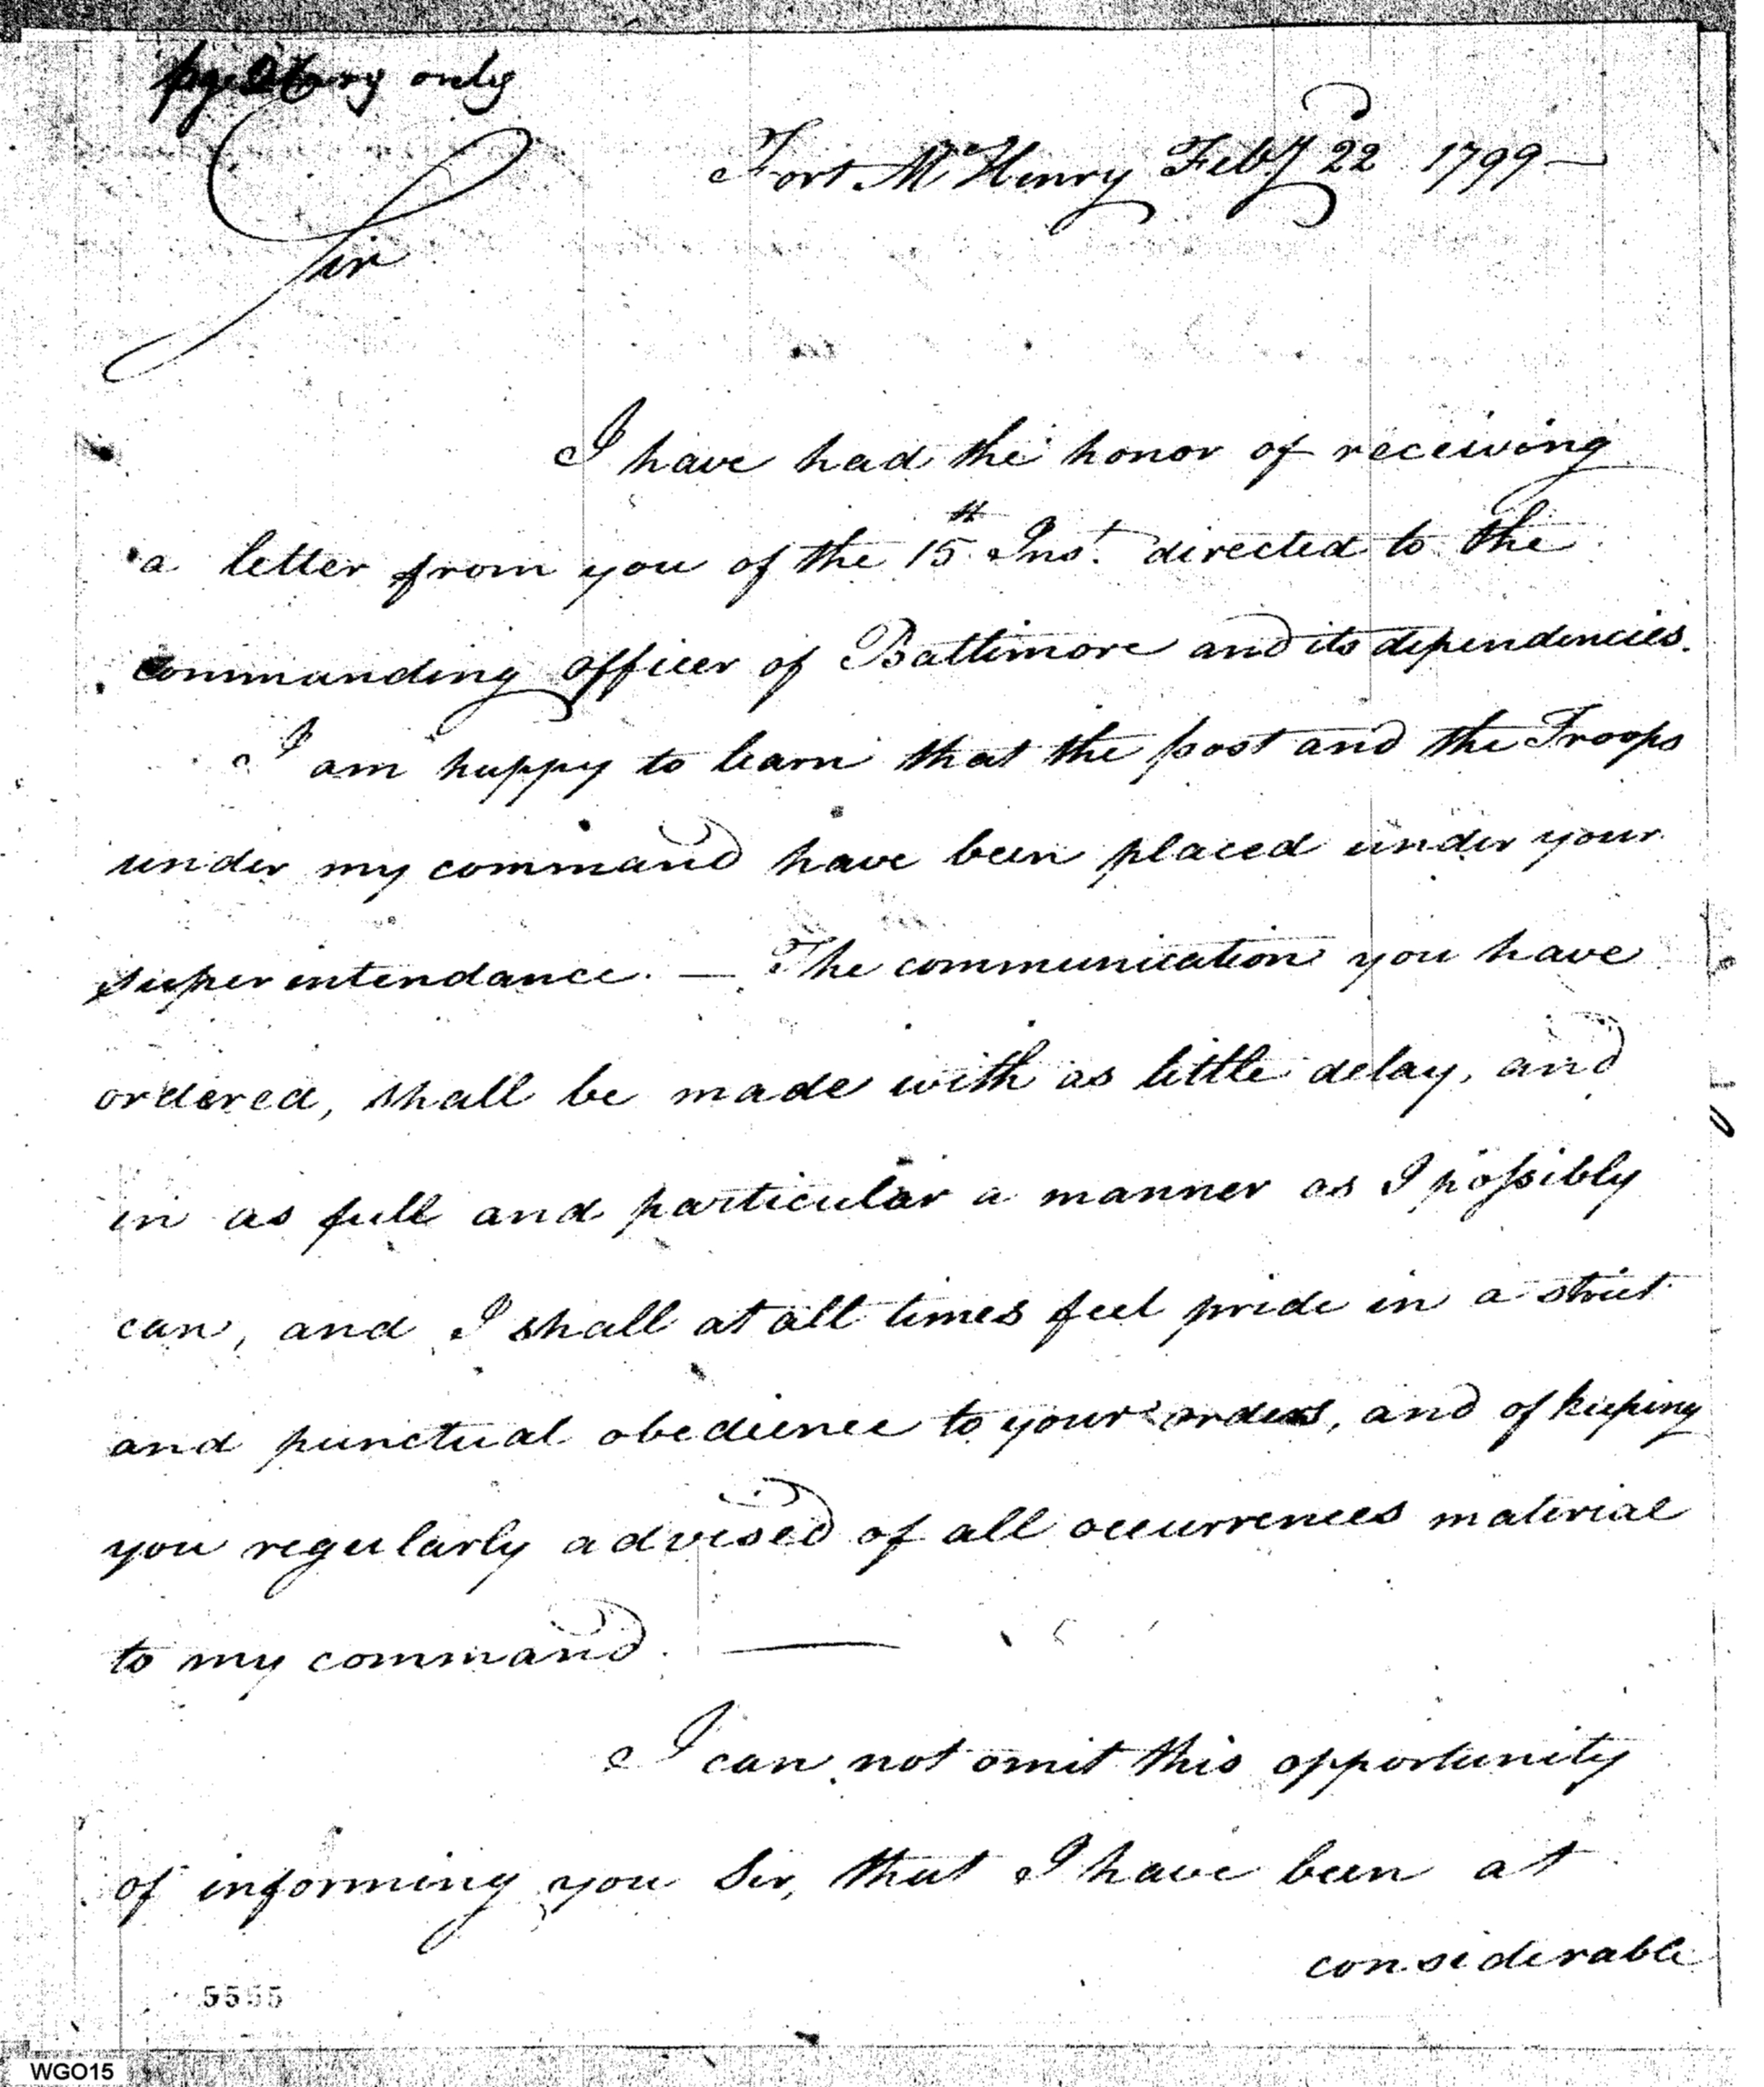 only
Fort McHenry Feby 22 1799 —
Sir
I have had the honor of receiving
a letter from you of the 15th Inst. directed to the
commanding officer of Baltimore and its dependencies.
I am happy to learn that the post and the Troops
under my command have been placed under your
superintendance. — The communication you have
ordered, shall be made with as little delay, and
in as full and particular a manner as I possibly
can, and I shall at all times feel pride in a strict
and punctual obedience to your orders, and of keeping
you regularly advised of all occurrences material
to my command. —
I can not omit this opportunity
of informing you Sir, that I have been at
considerable
5555
WGO15